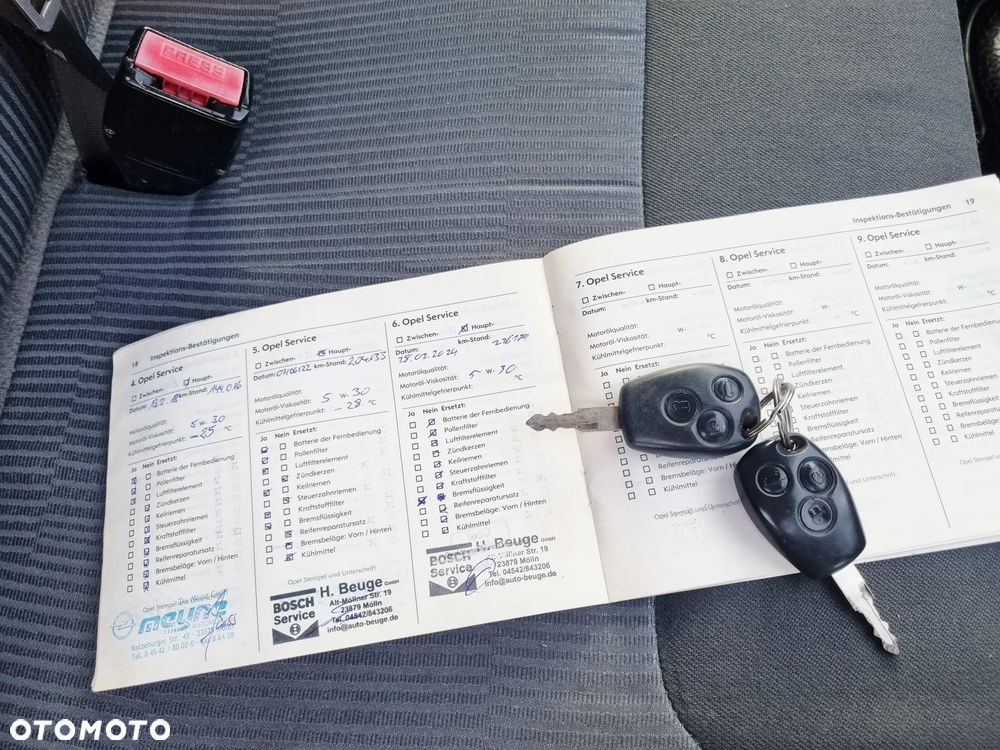 PRESS
18 Inspektions-Bestätigungen
4. Opel Service
Zwischen- Haupt-
Datum: km-Stand: 144.016
Motorölqualität:
Motoröl-Viskosität: 5 W- 30
Kühlmittelgefrierpunkt: -25 °C
Ja Nein Ersetzt:
Batterie der Fernbedienung
Pollenfilter
Luftfilterelement
Zündkerzen
Keilriemen
Steuerzahnriemen
Kraftstofffilter
Bremsflüssigkeit
Reifenreparatursatz
Bremsbeläge: Vorn / Hinten
Kühlmittel
Opel Stempel
Ratzeburger Str. 43
5. Opel Service
Zwischen- Haupt-
Datum: 07.06.22 km-Stand:
Motorölqualität:
Motoröl-Viskosität: 5 W- 30
Kühlmittelgefrierpunkt: -28 °C
Ja Nein Ersetzt:
Batterie der Fernbedienung
Pollenfilter
Luftfilterelement
Zündkerzen
Keilriemen
Steuerzahnriemen
Kraftstofffilter
Bremsflüssigkeit
Reifenreparatursatz
Bremsbeläge: Vorn / Hinten
Kühlmittel
Opel Stempel und Unterschrift
BOSCH Service
H. Beuge GmbH
Alt-Möllner Str. 19
23879 Mölln
Tel. 04542/843206
info@auto-beuge.de
6. Opel Service
Zwischen- Haupt-
Datum: km-Stand:
Motorölqualität:
Motoröl-Viskosität: 5 W- 30
Kühlmittelgefrierpunkt: °C
Ja Nein Ersetzt:
Batterie der Fernbedienung
Pollenfilter
Luftfilterelement
Zündkerzen
Keilriemen
Steuerzahnriemen
Kraftstofffilter
Bremsflüssigkeit
Reifenreparatursatz
Bremsbeläge: Vorn / Hinten
Kühlmittel
BOSCH Service
H. Beuge GmbH
Alt-Möllner Str. 19
23879 Mölln
Tel. 04542/843206
info@auto-beuge.de
Inspektions-Bestätigungen 19
7. Opel Service
Zwischen- Haupt-
Datum: km-Stand:
Motorölqualität:
Motoröl-Viskosität: W-
Kühlmittelgefrierpunkt: °C
Ja Nein
Reifenreparatursatz
Bremsbeläge: Vorn / Hinten
Kühlmittel
Opel Stempel und Unterschrift
8. Opel Service
Zwischen- Haupt-
Datum: km-Stand:
Motorölqualität:
Motoröl-Viskosität: W-
Kühlmittelgefrierpunkt: °C
Ja Nein Ersetzt:
Batterie der Fernbedienung
Pollenfilter
Luftfilterelement
Zündkerzen
Keilriemen
Steuerzahnriemen
Kraftstofffilter
Bremsflüssigkeit
Reifenreparatursatz
Bremsbeläge: Vorn / Hinten
Kühlmittel
9. Opel Service
Zwischen- Haupt-
Datum: km-Stand:
Motorölqualität:
Motoröl-Viskosität:
Kühlmittelgefrierpunkt:
Ja Nein Ersetzt:
OTOMOTO